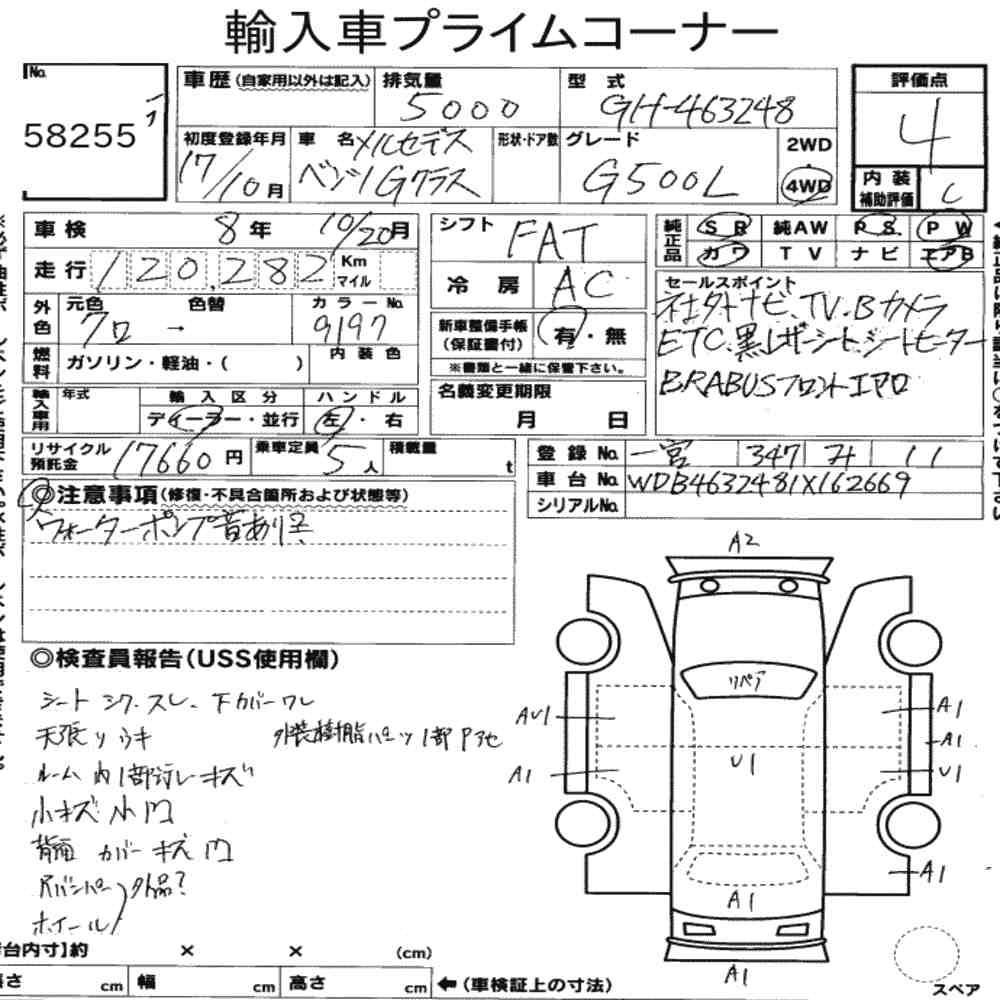 輸入車プライムコーナー
No. 58255
車歴(自家用以外は記入) 排気量 5000 型式 GH-463248
評価点 4
初度登録年月 17/10月 車名 メルセデスベンツGクラス 形状・ドア数 グレード G500L 2WD・4WD
内装補助評価 C
車検 8年 10/20月
シフト FAT
純正品 SR 純AW PS PW
カワ TV ナビ エアB
走行 120,282 Km マイル
冷房 AC
外色 元色 クロ 色替 → カラーNo. 9197
新車整備手帳(保証書付) 有・無
※書類と一緒に保管下さい。
セールスポイント
社外ナビ、TV、Bカメラ
ETC、黒レザーシート、シートヒーター
BRABUSフロントエアロ
燃料 ガソリン・軽油・( ) 内装色
名義変更期限 月 日
輸入車用 年式 輸入区分 ディーラー・並行 ハンドル 左・右
リサイクル預託金 17660円 乗車定員 5人 積載量 t
登録No. 一宮 347 ナ 11
車台No. WDB4632481X162669
シリアルNo.
◎注意事項(修復・不具合箇所および状態等)
ウォーターポンプ音あり
◎検査員報告(USS使用欄)
シート シワ、スレ、下カバーワレ
天張り ウキ
外装樹脂パーツ1部Pアセ
ルーム内1部汚レ キズ
小キズ 小凹
背面カバー キズ凹
Rバンパー 外品?
ホイール
A2
リペア
AU1
A1
A1
A1
A1
U1
U1
A1
A1
A1
スペア
台内寸】約 × × (cm)
長さ cm 幅 cm 高さ cm ←(車検証上の寸法)